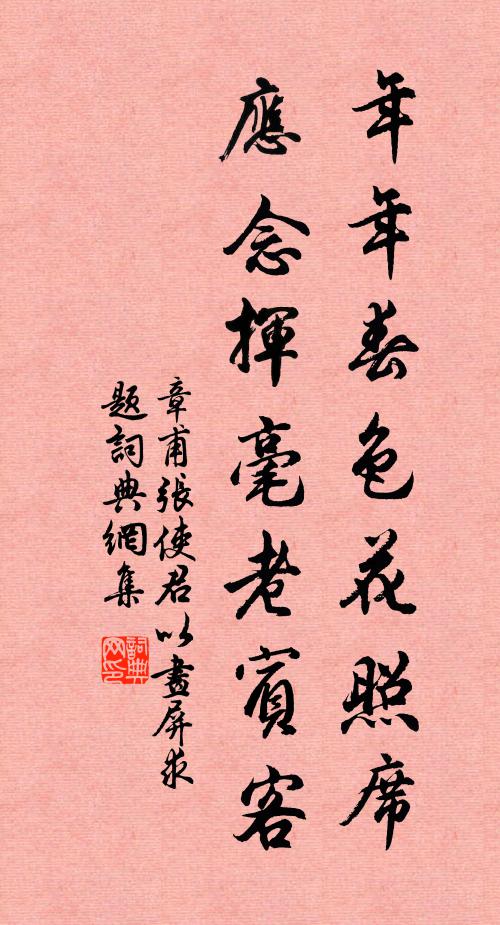 年年春色花照席
應念揮毫老賓客
章甫張使君以畫屏求
題詞典網集
詞典
网印